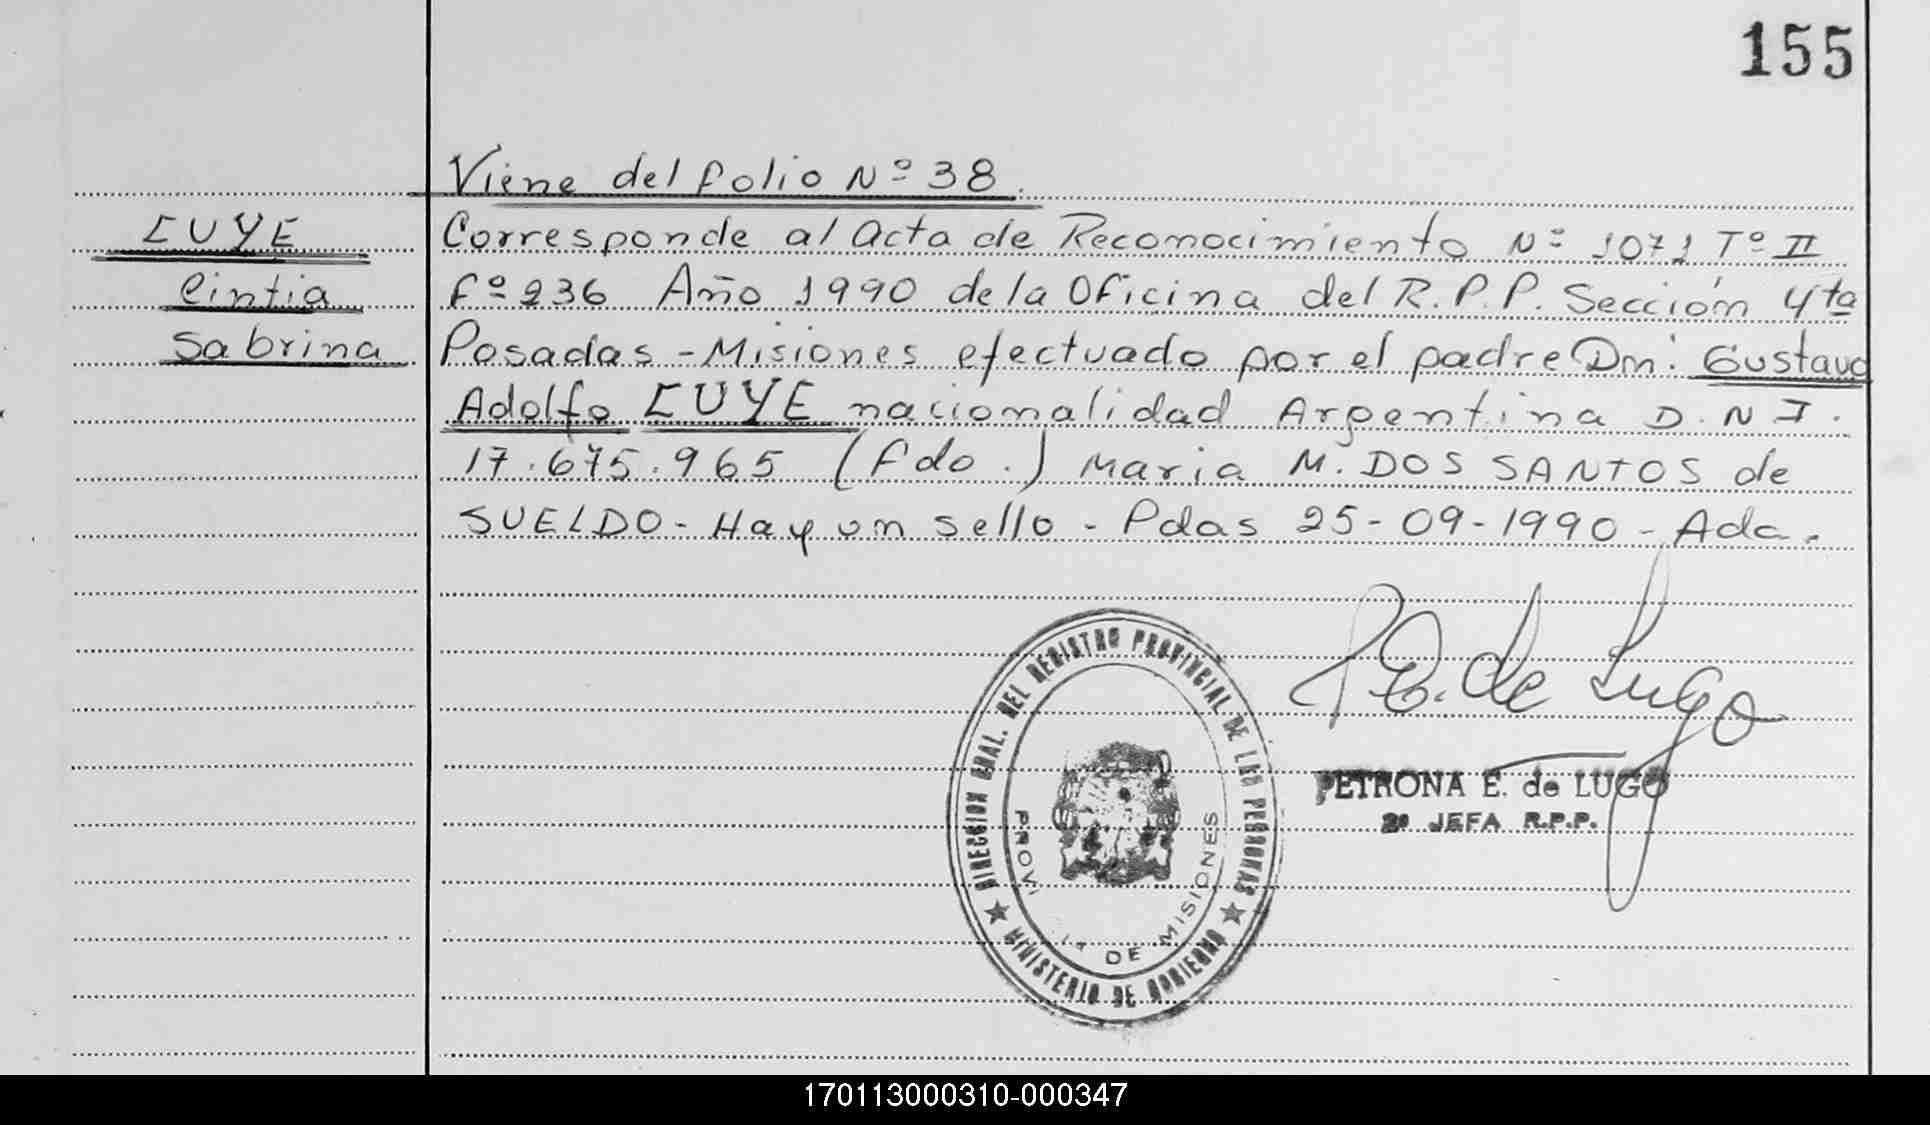 155
Viene del folio Nº 38.
CUYE
Cintia
Sabrina
Corresponde al Acta de Reconocimiento Nº 1071 Tº II
Fº 236 Año 1990 de la Oficina del R.P.P. Sección 4ta
Posadas - Misiones efectuado por el padre Dn: Gustavo
Adolfo CUYE nacionalidad Argentina D.N.I.
17.675.965 (Fdo.) Maria M. DOS SANTOS de
SUELDO - Hay un sello - Pdas 25-09-1990 - Ada.
P.E. de Lugo
PETRONA E. de LUGO
2º JEFA R.P.P.
DIRECCION GRAL. DEL REGISTRO PROVINCIAL DE LAS PERSONAS
MINISTERIO DE GOBIERNO
DE MISIONES
170113000310-000347